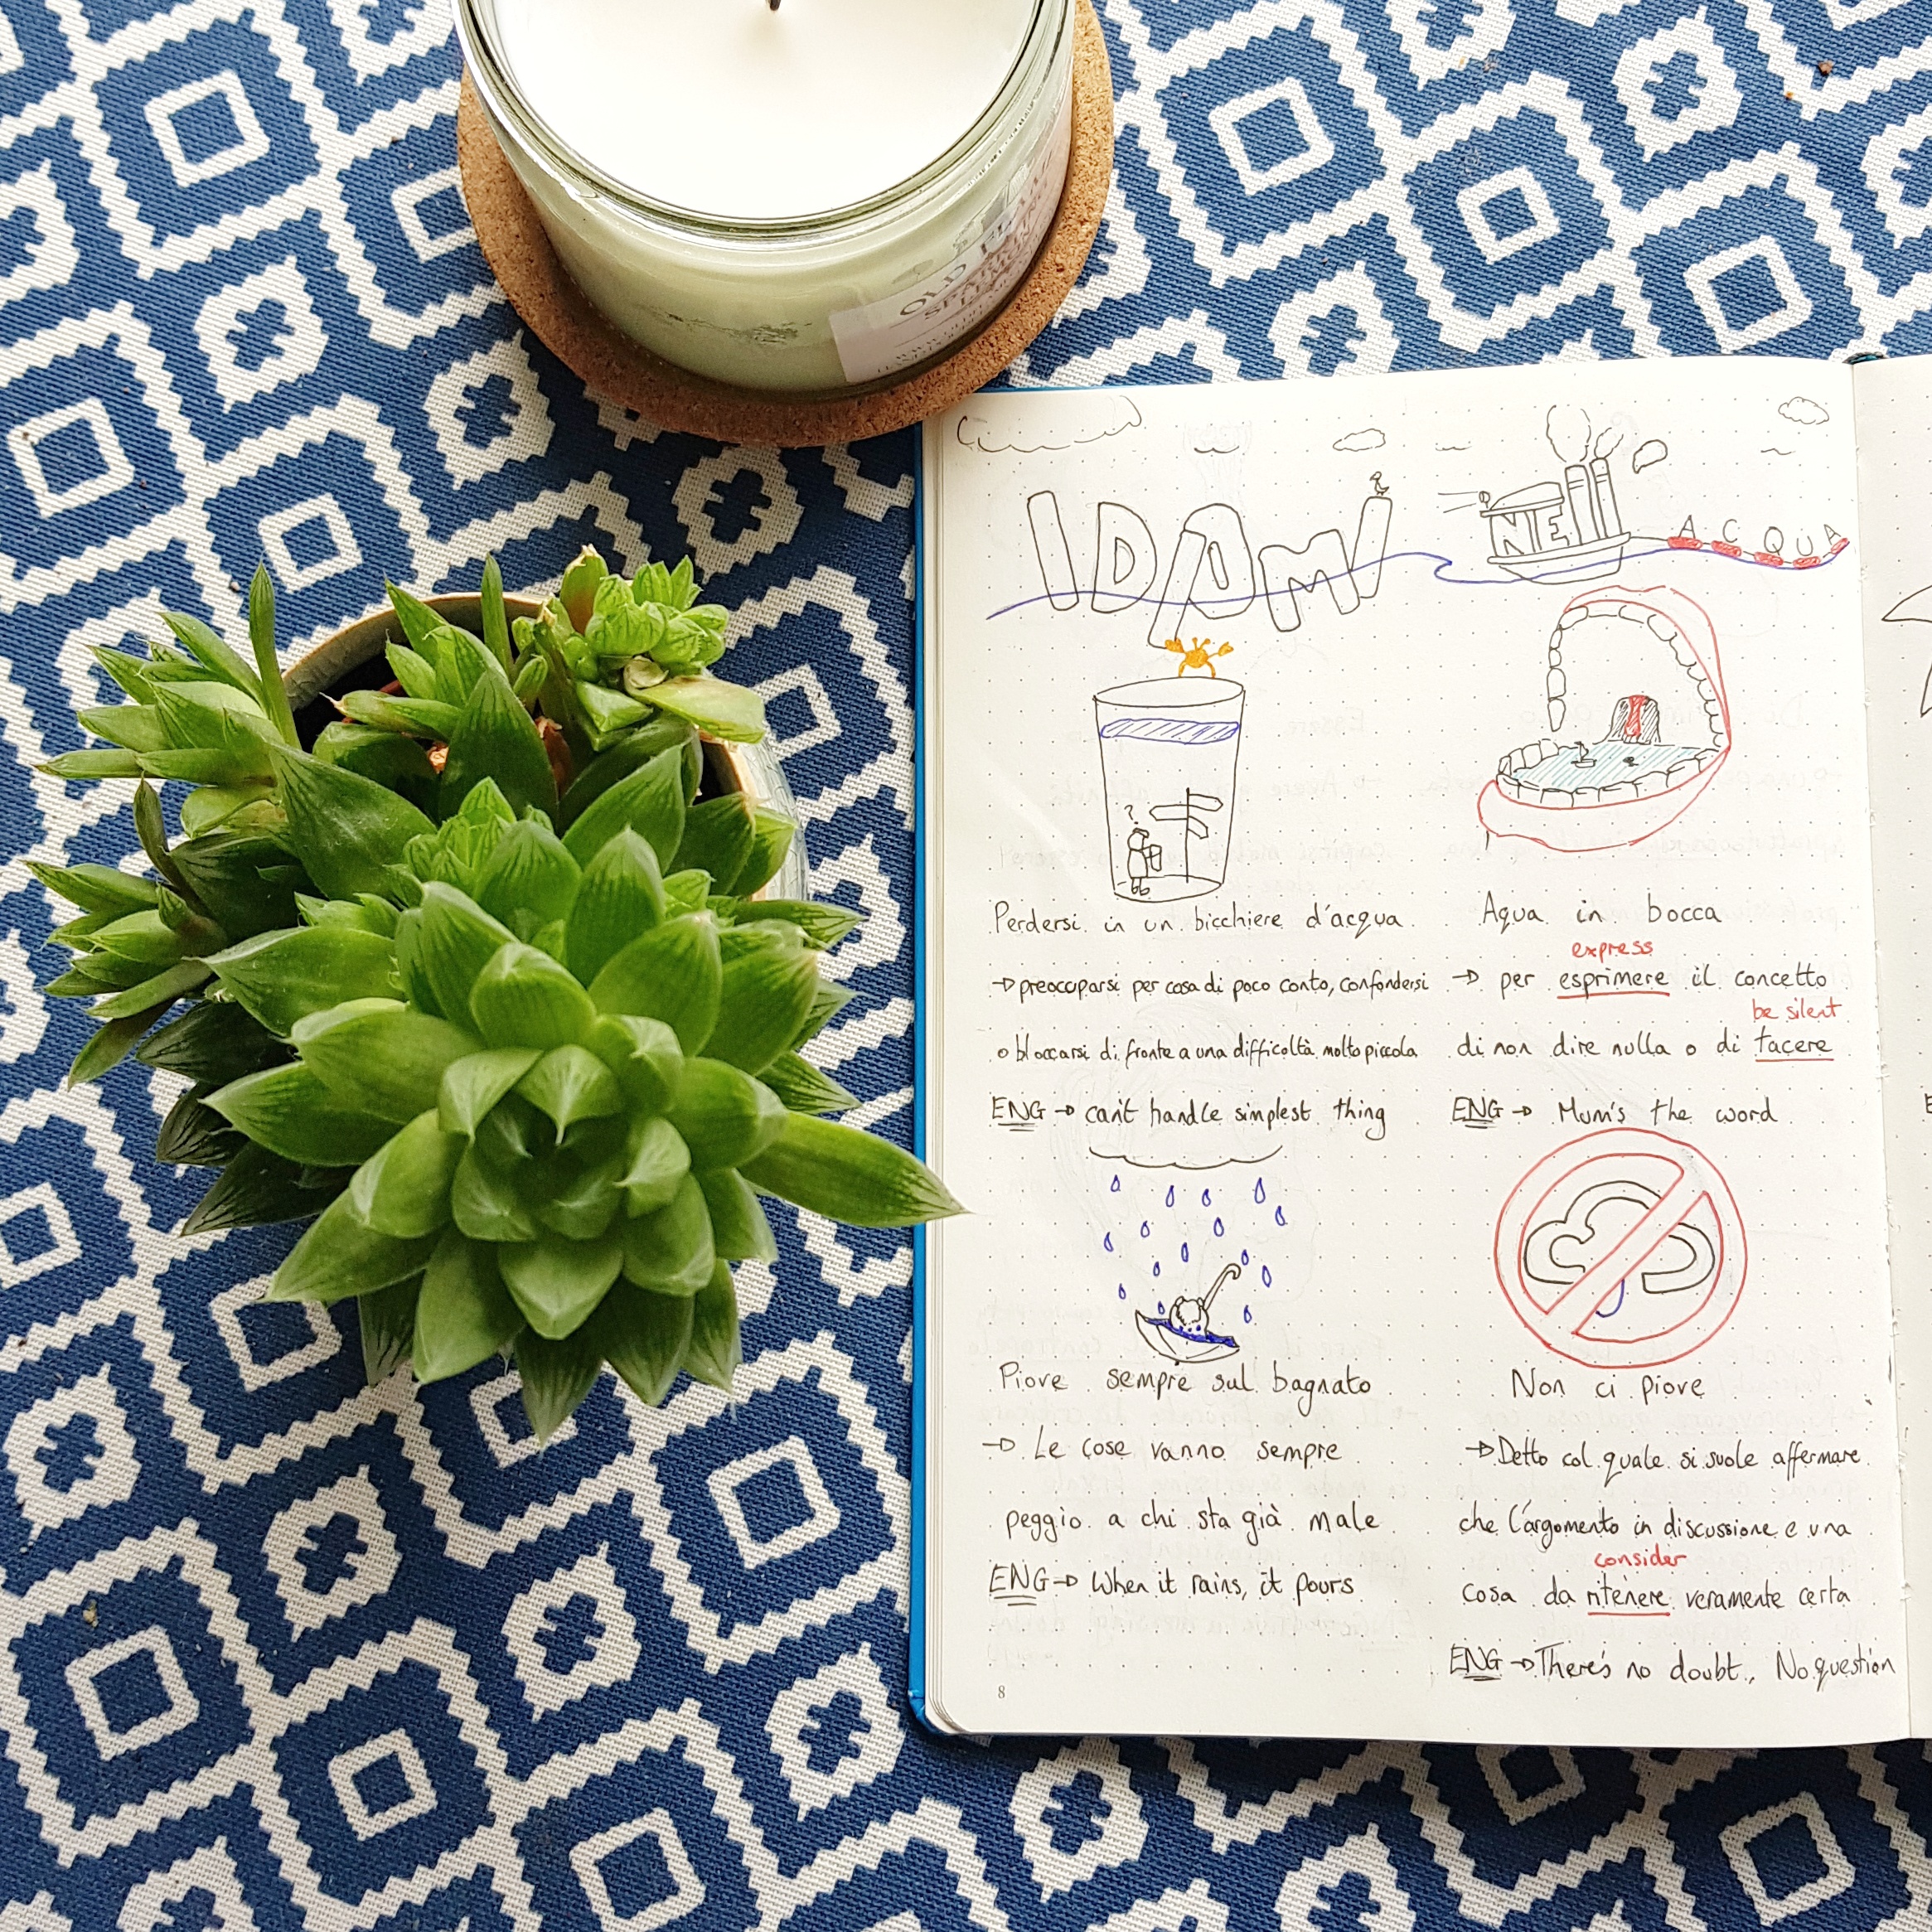 OLD
IDIOMI NELL ACQUA
Perdersi in un bicchiere d'acqua
→ preoccuparsi per cosa di poco conto, confondersi
o bloccarsi di fronte a una difficoltà molto piccola
ENG → can't handle simplest thing
Aqua in bocca
express
→ per esprimere il concetto
be silent
di non dire nulla o di tacere
ENG → Mum's the word
Piove sempre sul bagnato
→ Le cose vanno sempre
peggio a chi sta già male
ENG → When it rains, it pours
Non ci piove
→ Detto col quale si suole affermare
che l'argomento in discussione e una
consider
cosa da ritenere veramente certa
ENG → There's no doubt, No question
8